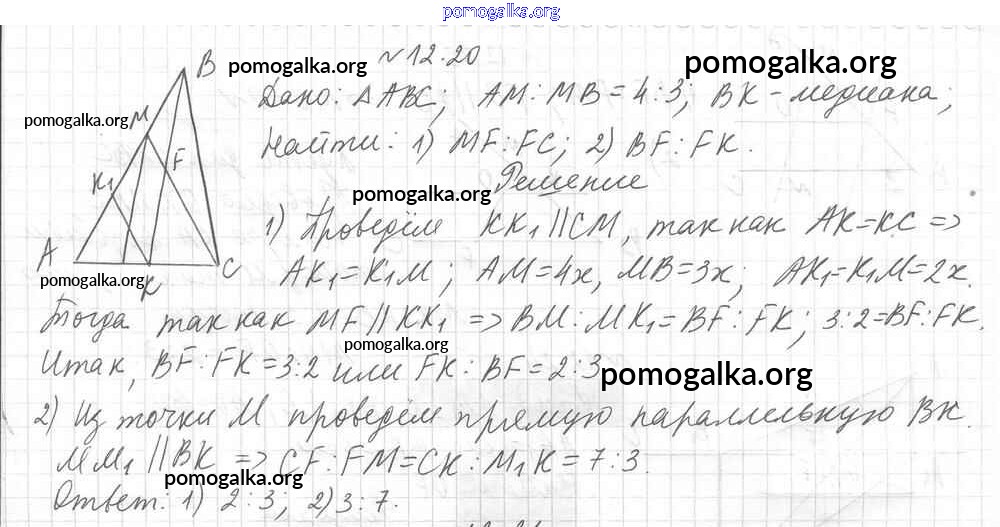 pomogalka.org
№12.20
pomogalka.org
pomogalka.org
Дано: △ABC; AM:MB=4:3; BK-медиана;
pomogalka.org
Найти: 1) MF:FC; 2) BF:FK.
pomogalka.org
Решение
1) Проведём KK₁||CM, так как AK=KC =>
AK₁=K₁M; AM=4x, MB=3x; AK₁=K₁M=2x.
pomogalka.org
B
M
F
K₁
A
K
C
Тогда так как MF||KK₁ => BM:MK₁=BF:FK; 3:2=BF:FK.
pomogalka.org
Итак, BF:FK=3:2 или FK:BF=2:3
pomogalka.org
2) Из точки M проведём прямую параллельную BK.
MM₁||BK => CF:FM=CK:M₁K=7:3.
pomogalka.org
Ответ: 1) 2:3; 2) 3:7.